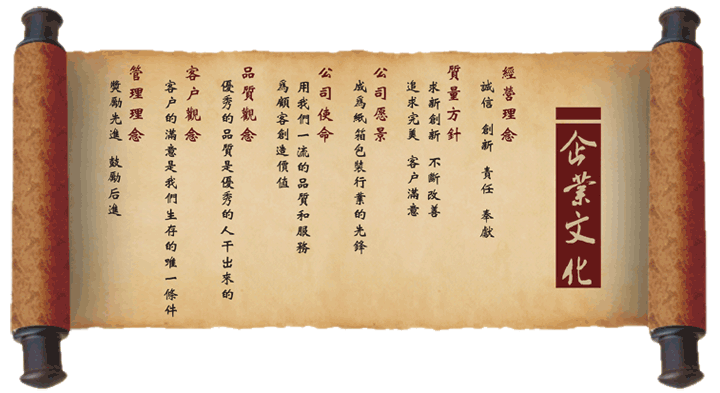 企業文化
經營理念
誠信 創新 責任 奉獻
質量方針
求新創新 不斷改善
追求完美 客户滿意
公司愿景
成爲紙箱包裝行業的先鋒
公司使命
用我們一流的品質和服務
爲顧客創造價值
品質觀念
優秀的品質是優秀的人干出來的
客户觀念
客户的滿意是我們生存的唯一條件
管理理念
獎勵先進 鼓勵后進